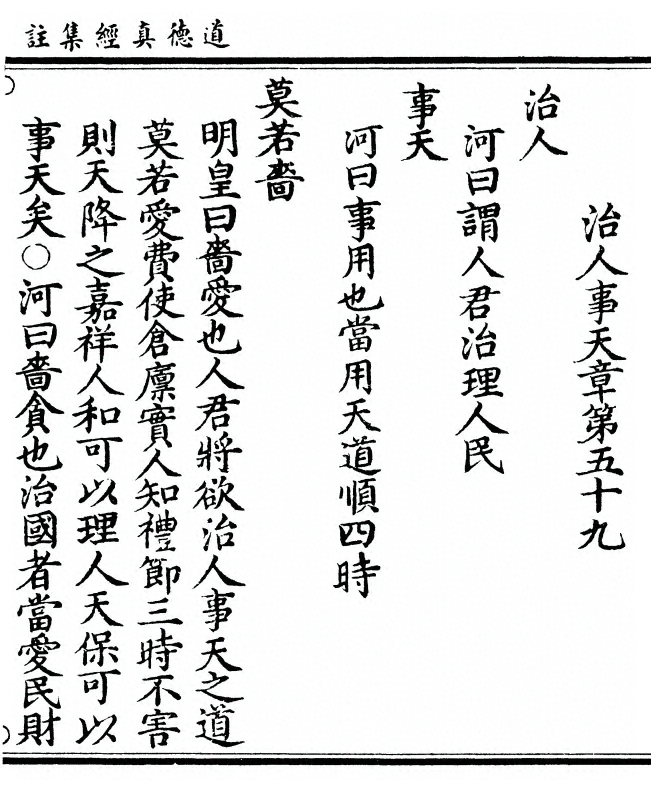 道德真經集註
治人事天章第五十九
治人
河曰謂人君治理人民
事天
河曰事用也當用天道順四時
莫若嗇
明皇曰嗇愛也人君將欲治人事天之道
莫若愛費使倉廩實人知禮節三時不害
則天降之嘉祥人和可以理人天保可以
事天矣○河曰嗇貪也治國者當愛民財